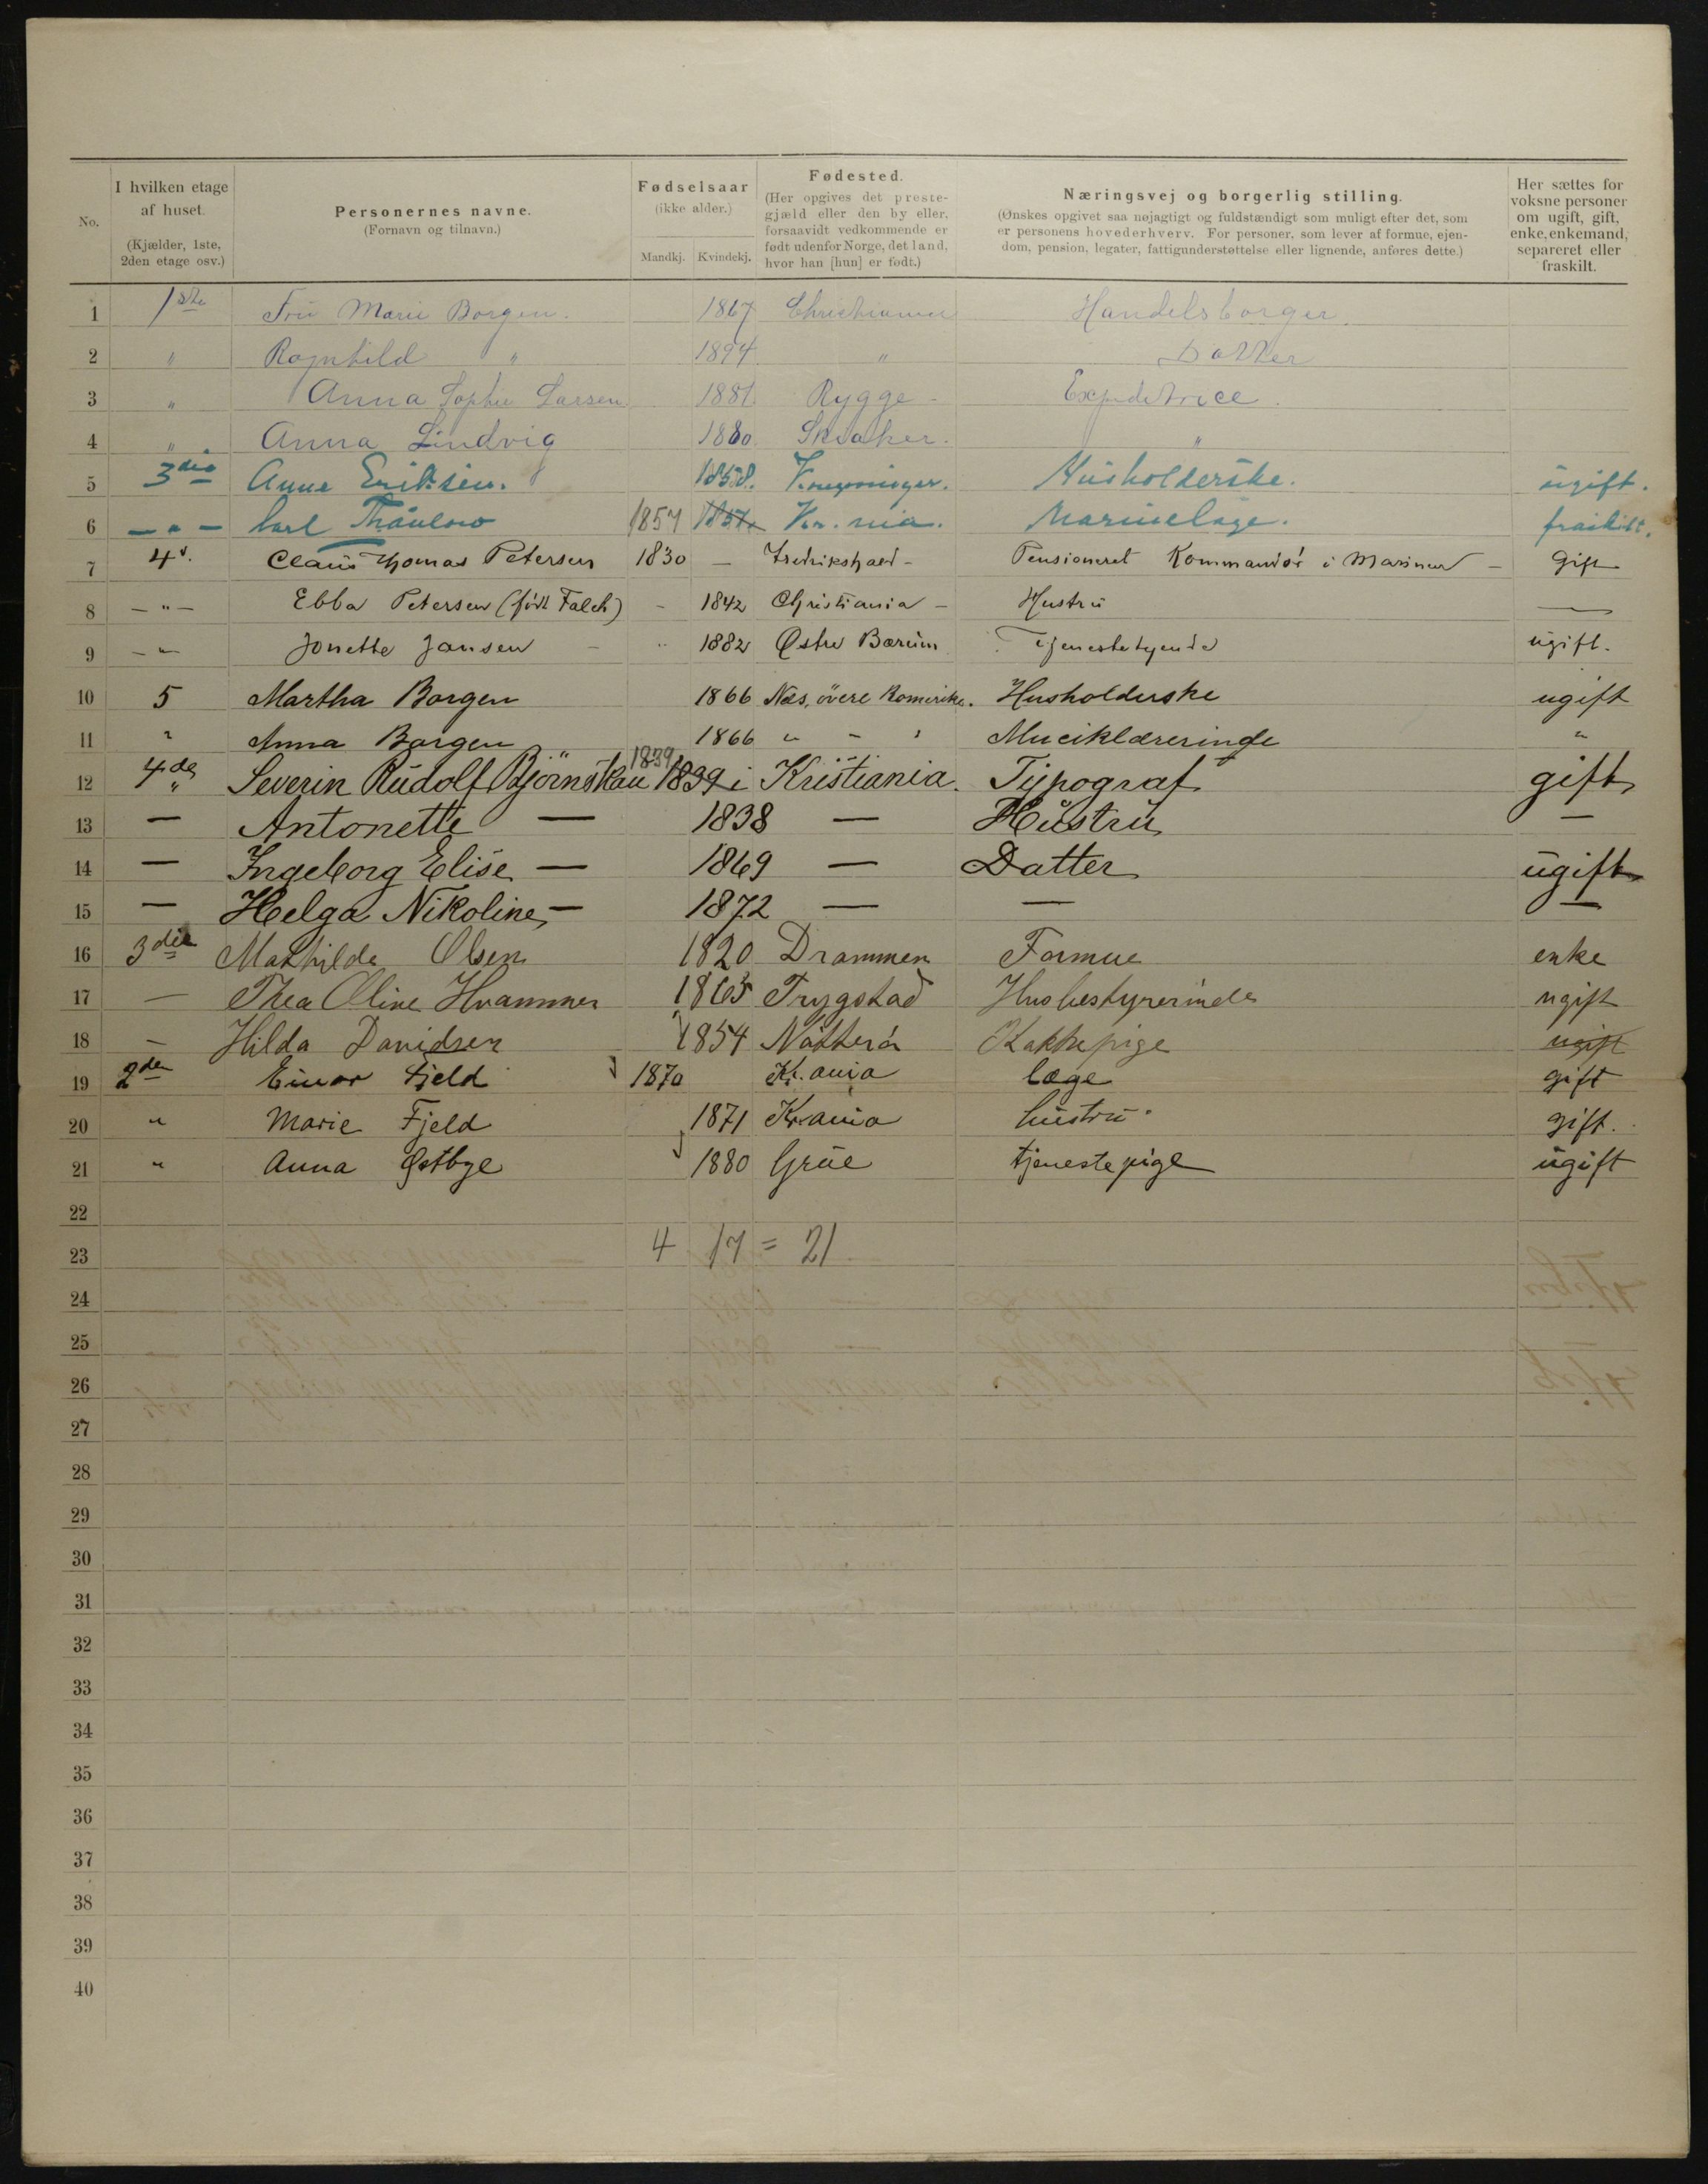 No. | I hvilken etage af huset. (Kjælder, 1ste, 2den etage osv.) | Personernes navne. (Fornavn og tilnavn.) | Fødselsaar (ikke alder.) Mandkj. Kvindekj. | Fødested. (Her opgives det prestegjæld eller den by eller, forsaavidt vedkommende er født udenfor Norge, det land, hvor han [hun] er født.) | Næringsvej og borgerlig stilling. (Ønskes opgivet saa nøjagtigt og fuldstændigt som muligt efter det, som er personens hovederhverv. For personer, som lever af formue, ejendom, pension, legater, fattigunderstøttelse eller lignende, anføres dette.) | Her sættes for voksne personer om ugift, gift, enke, enkemand, separeret eller fraskilt.
1 1ste Fru Marie Borgen. 1867 Christiania Handelsborger.
2 " Ragnhild " 1894 " Datter
3 " Anna Sophie Larsen 1881 Rygge - Expeditrice.
4 " Anna Lindvig 1880. Skiaker. "
5 3die Anne Eriksen. 1858. Husholderske. ugift.
6 - " - Carl Thaulow 1857 1857 Kr.nia. Marinelæge. fraskilt.
7 4. Claus Thomas Petersen 1830 - Fredrikshald - Pensioneret Kommandör i Marinen - Gift
8 - " - Ebba Petersen (född Falch) - 1842 Christiania - Hustru —
9 - " Jonette Jansen - " 1882 Østre Bærum Tjenestetyende ugift.
10 5 Martha Borgen 1866 Næs, övere Romerike. Husholderske ugift
11 " Anna Borgen 1866 " - " Musiklærerinde "
12 4de " Severin Rudolf Björnskau 1839 1839 i Kristiania. Typograf gift
13 — Antonette — 1838 — Hustru —
14 — Ingeborg Elise — 1869 — Datter ugift
15 — Helga Nikoline — 1872 — — —
16 3die Mathilde Olsen 1820 Drammen Formue enke
17 — Thea Oline Hvammer 1865 Trygstad Husbestyrerinde ugift
18 — Hilda Davidsen 1854 Nötterö Kokkepige ugift
19 2den Einar Fjeld 1870 Kr.ania læge gift
20 " Marie Fjeld 1871 Kr.ania hustru. gift.
21 " Anna Østbye 1880 Grue tjenestepige ugift
22
23 4 17 = 21
24
25
26
27
28
29
30
31
32
33
34
35
36
37
38
39
40